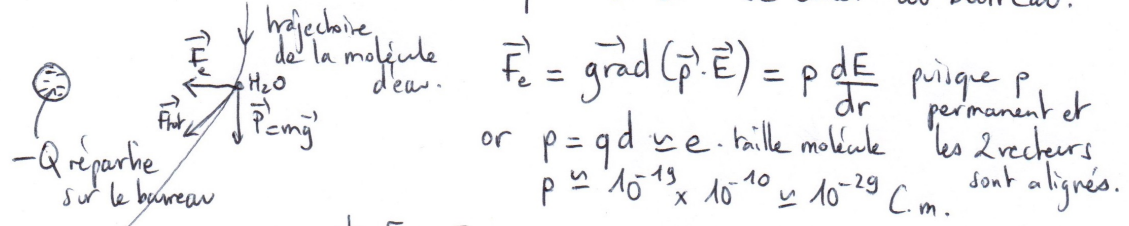 au barreau.
trajectoire
de la molécule
d'eau.
F⃗e
H₂O
F⃗tot
P⃗=mg⃗
-Q répartie
sur le barreau
F⃗e = grad⃗ (p⃗·E⃗) = p dE/dr puisque p
permanent et
les 2 vecteurs
sont alignés.
or p = qd ≃ e. taille molécule
p ≃ 10⁻¹⁹ × 10⁻¹⁰ ≃ 10⁻²⁹ C.m.